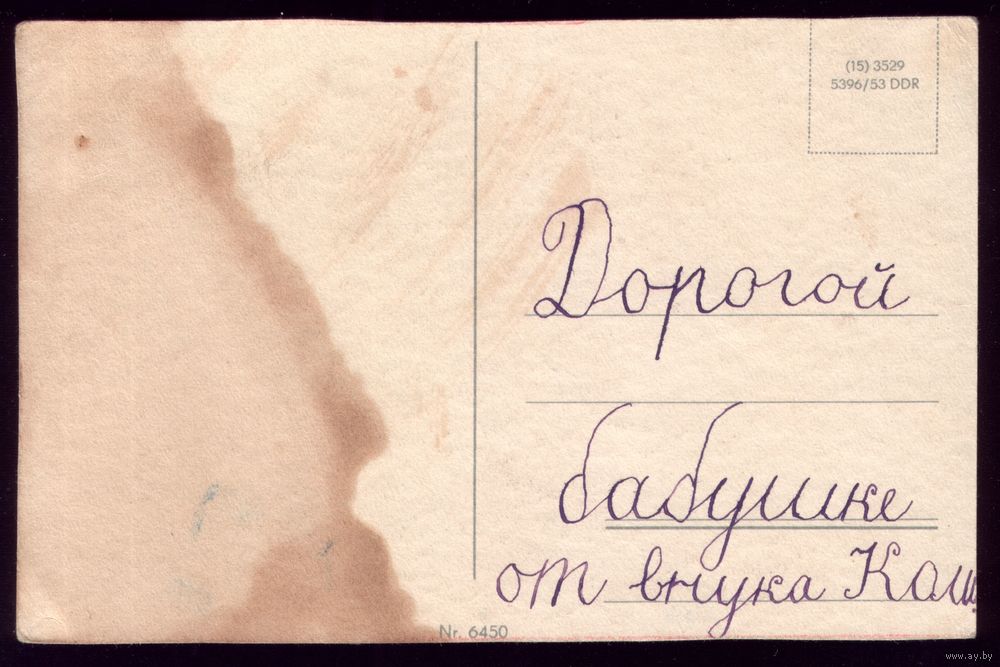 (15) 3529
5396/53 DDR
Дорогой
бабушке
от внука Коли
Nr. 6450
www.ay.by